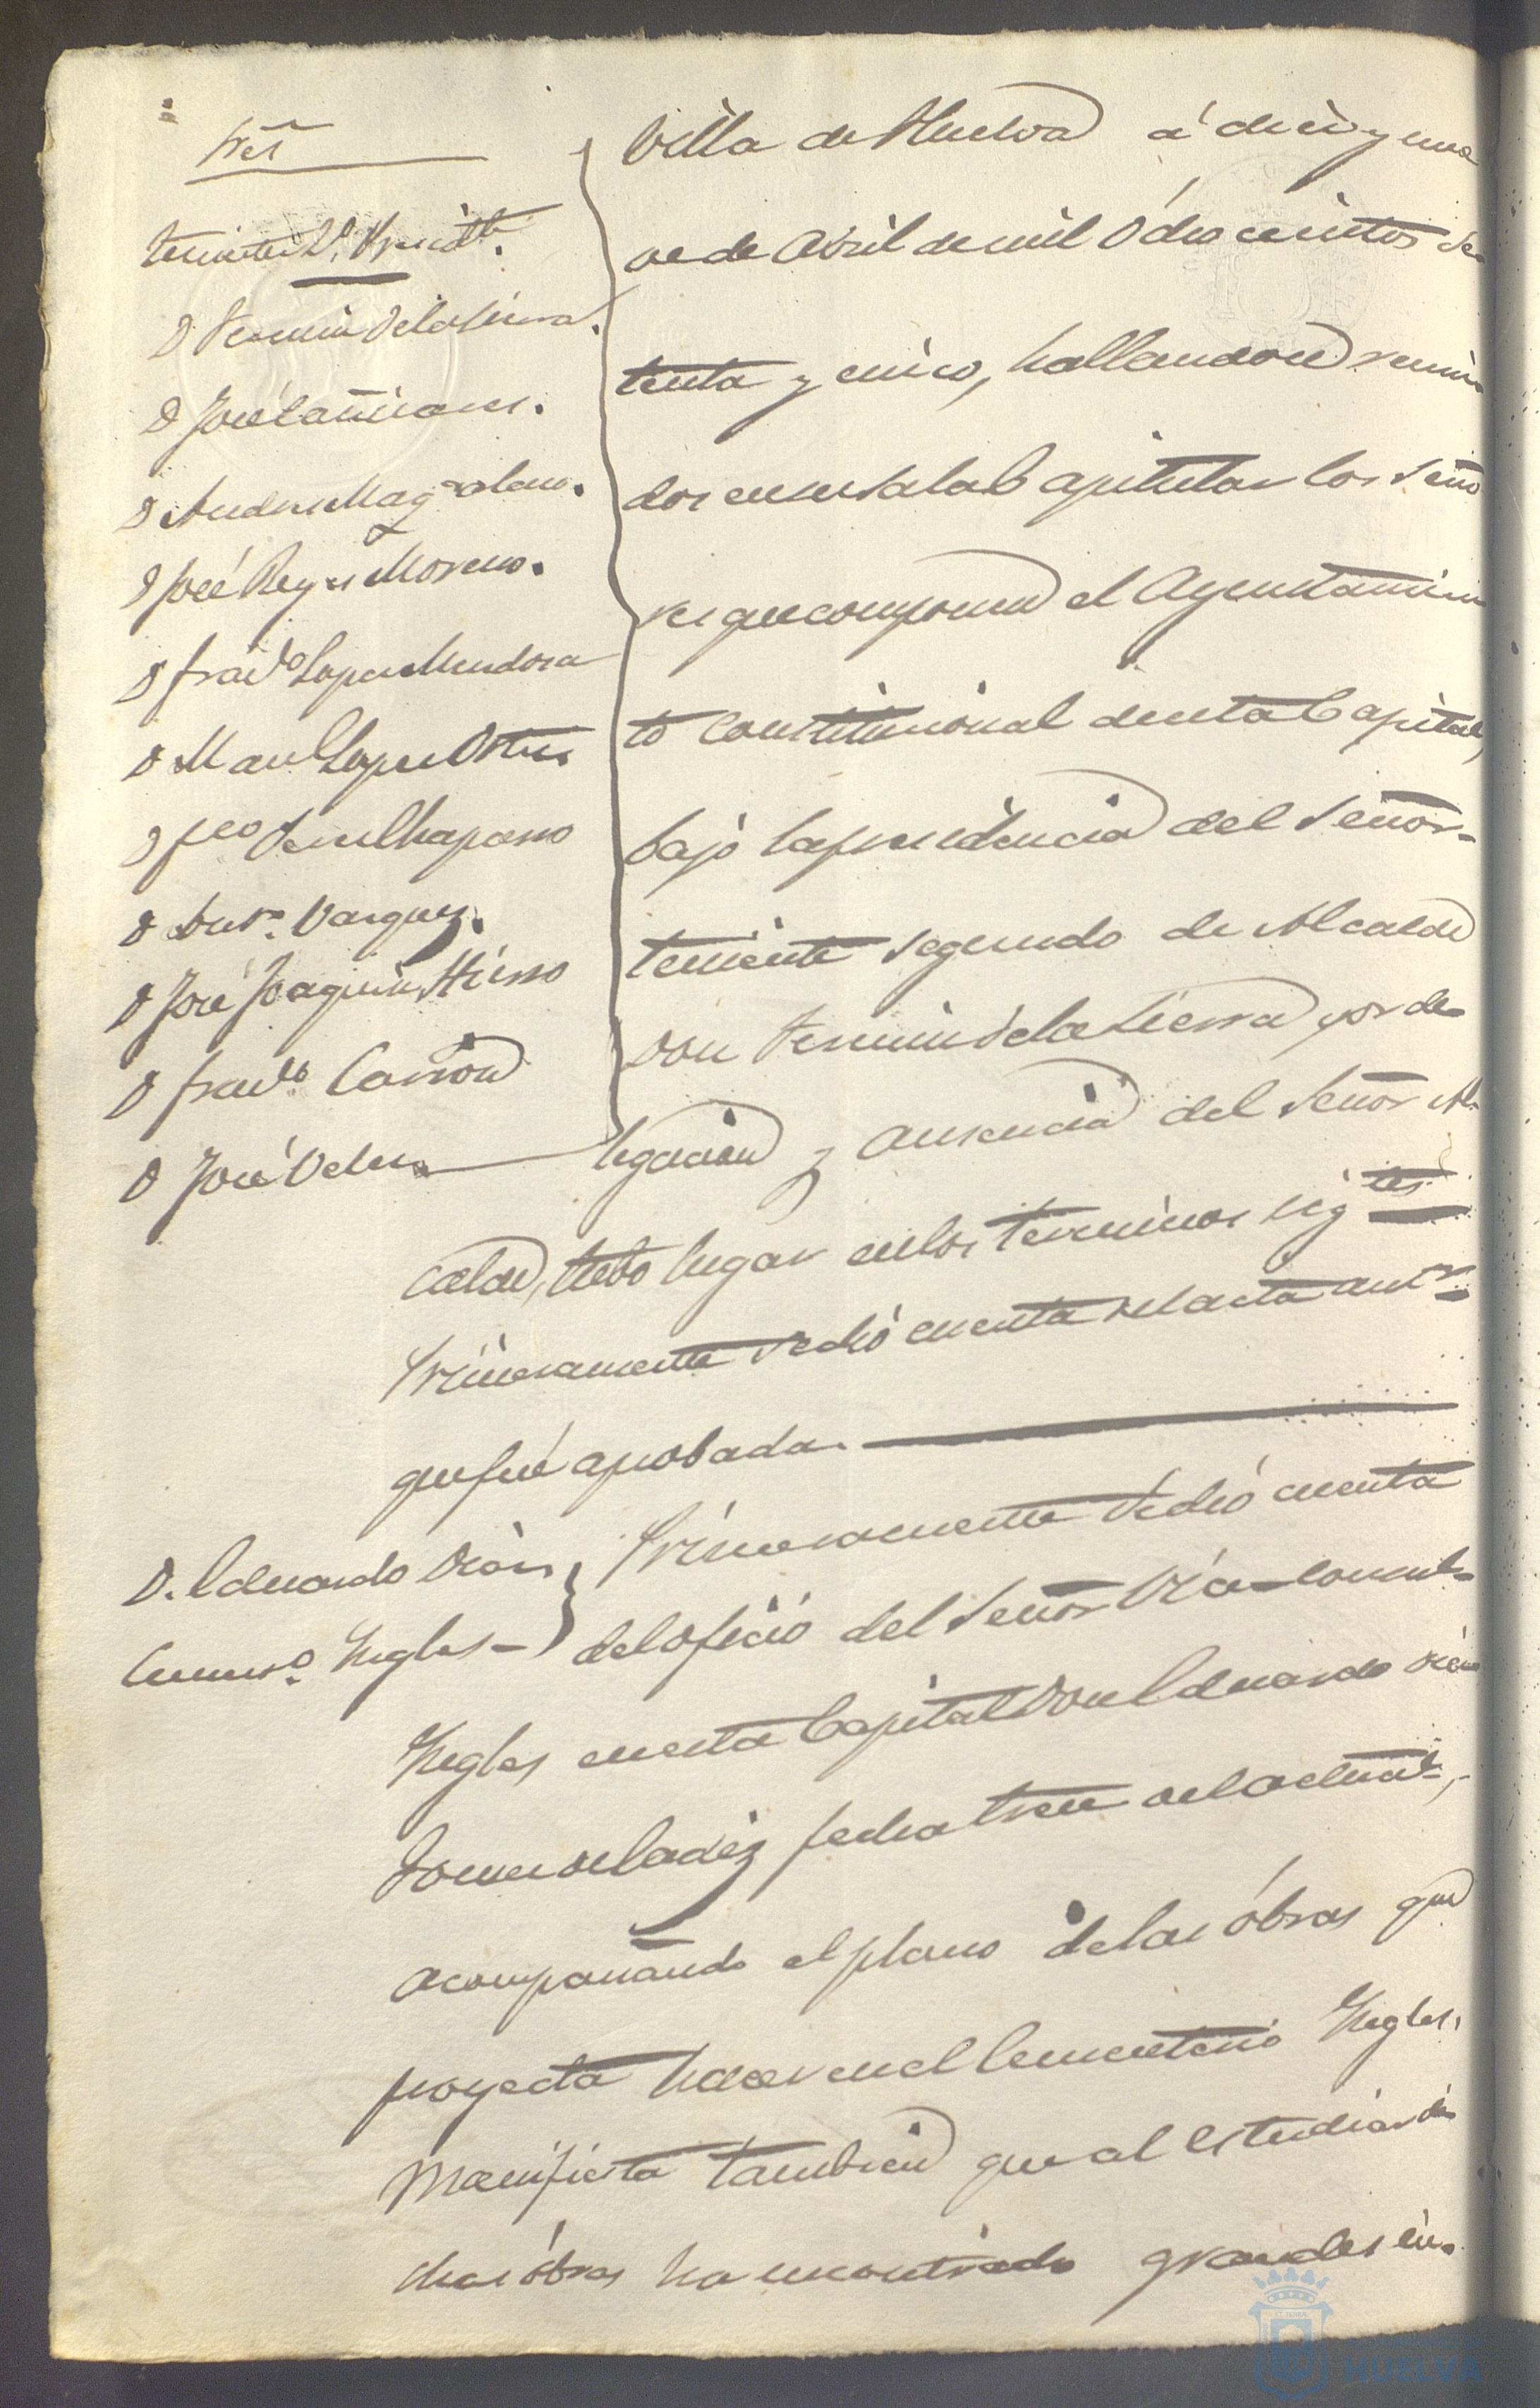 Sres
Teniente 2º Presidte.
D Fermin de la Sierra.
D José
D Andres Magdaleno.
D José Reyes Moreno.
D Franco Lopez Mendoza
D Manl Lopez Ortiz
D
D Anto. Vazquez.
D José Joaquin Hierro
D Franco. Carrion
D José Velez
Villa de Huelva á diez y nue
ve de Abril de mil ochocientos se
tenta y cinco, hallandose reuni
dos en su Sala Capitular los Seño
res que componen el Ayuntamien
to Constitucional de esta Capital,
bajo la presidencia del Señor
Teniente segundo de Alcalde
Don Fermin de la Sierra por de
legacion y ausencia del Señor Al
calde, tubo lugar en los terminos sigtes
Primeramente se dió cuenta del acta antr
que fué aprobada.
D. Eduardo Diaz
Cemento. Ingles
Primeramente se dió cuenta
del oficio del Señor Vice-Consul
Ingles en esta Capital Don Eduardo Diaz
Gomez de Cadiz fecha trece del actual,
acompañando el plano de las óbras que
proyecta hacer en el Cementerio Ingles.
Manifiesta tambien que al estudiar di
chas óbras ha encontrado grandes in
HUELVA